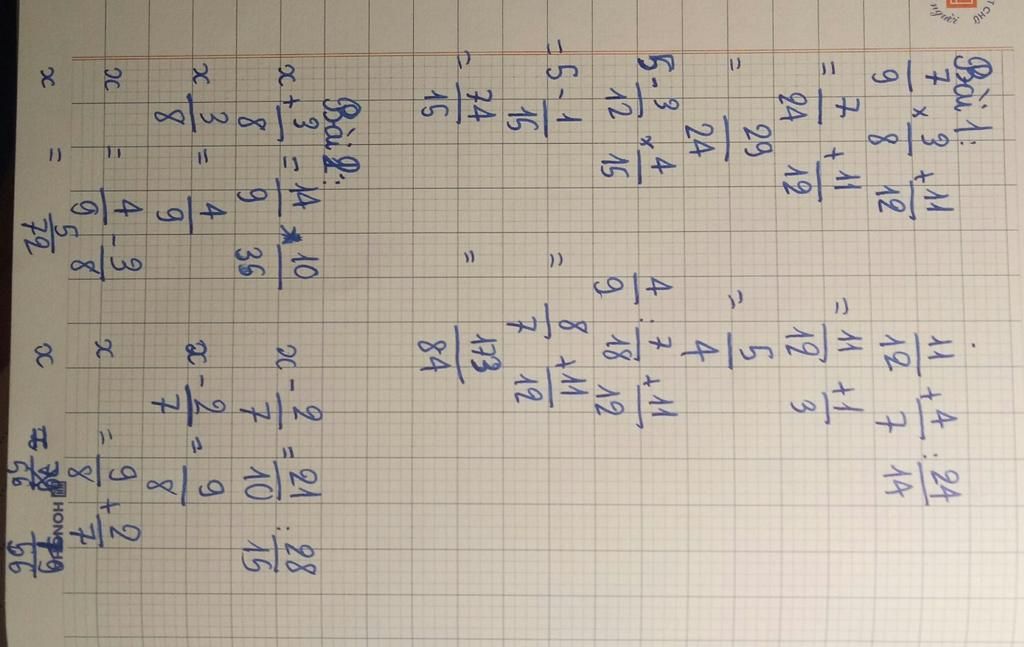 người
T CHO
Bài 1:
7/9 × 3/8 + 11/12
= 7/24 + 11/12
= 29/24
5 - 3/12 × 4/15
= 5 - 1/15
= 74/15
11/12 + 4/7 : 24/14
= 11/12 + 1/3
= 5/4
4/9 : 7/18 + 11/12
= 8/7 + 11/12
= 173/84
Bài 2:
x + 3/8 = 14/9 × 10/35
x 3/8 = 4/9
x = 4/9 - 3/8
x = 5/72
x - 2/7 = 21/10 : 28/15
x - 2/7 = 9/8
x = 9/8 + 2/7
x 79/56